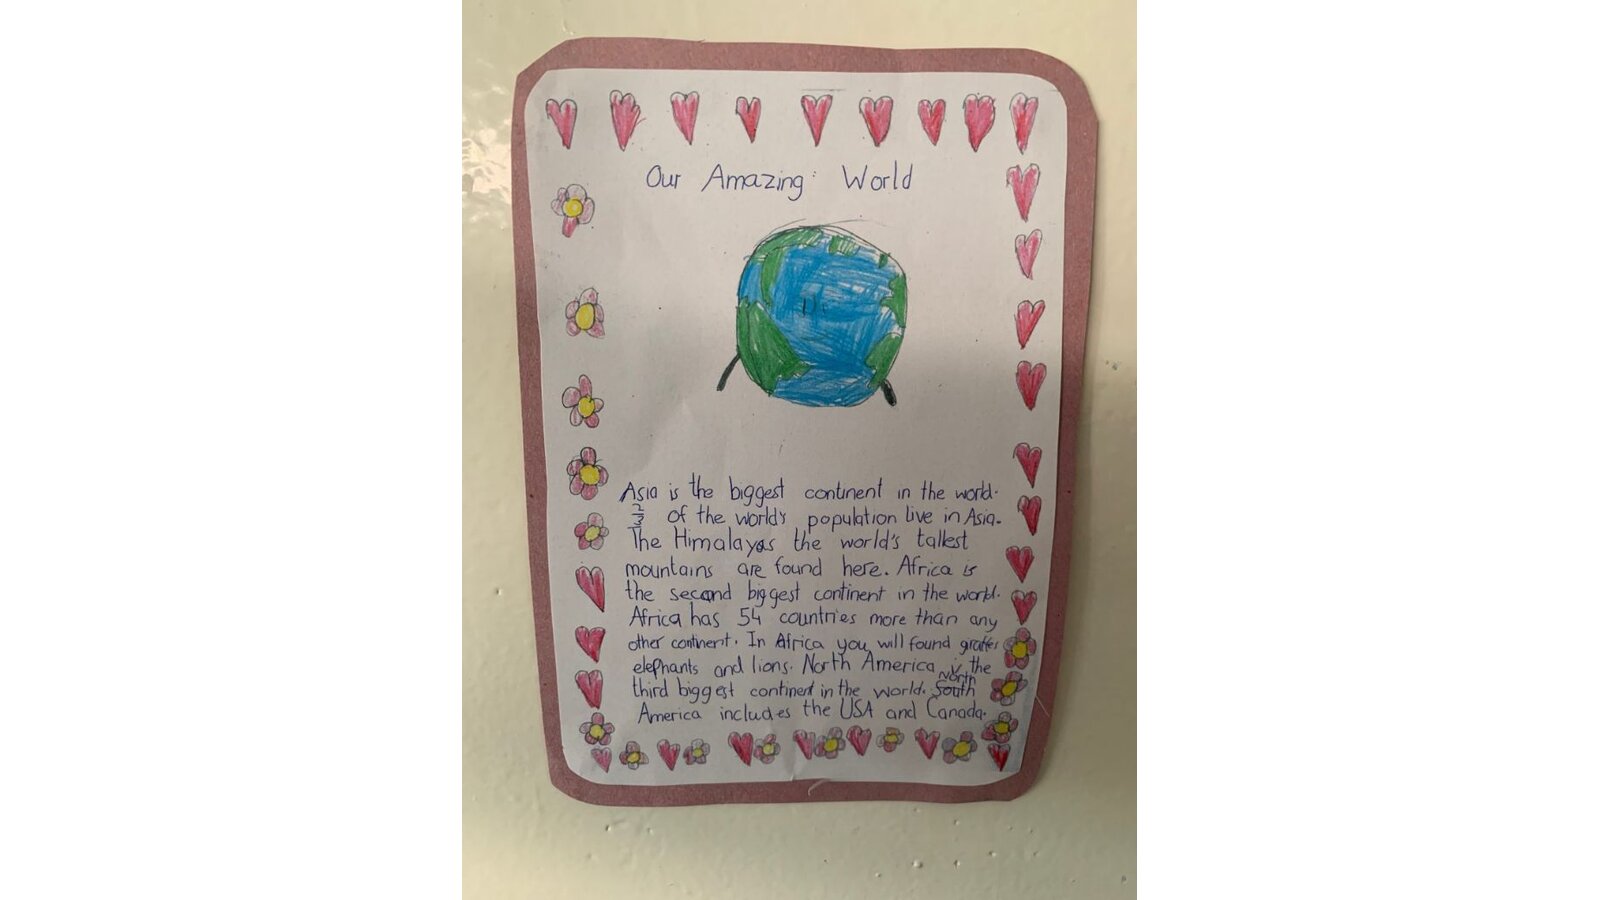 Our Amazing World
Asia is the biggest continent in the world.
of the world's population live in Asia.
The Himalayas the world's tallest
mountains are found here. Africa is
the second biggest continent in the world.
Africa has 54 countries more than any
other continent. In Africa you will found giraffes
elephants and lions. North America is the
third biggest continent in the world. South North
America includes the USA and Canada.